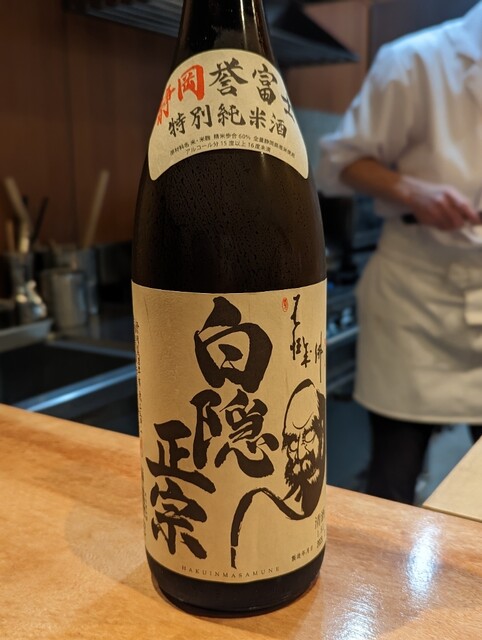 静岡 誉富士
特別純米酒
原材料名 米・米麹 精米歩合60% 全量静岡県産米使用
アルコール分15度以上16度未満
白隠
正宗
HAKUINMASAMUNE